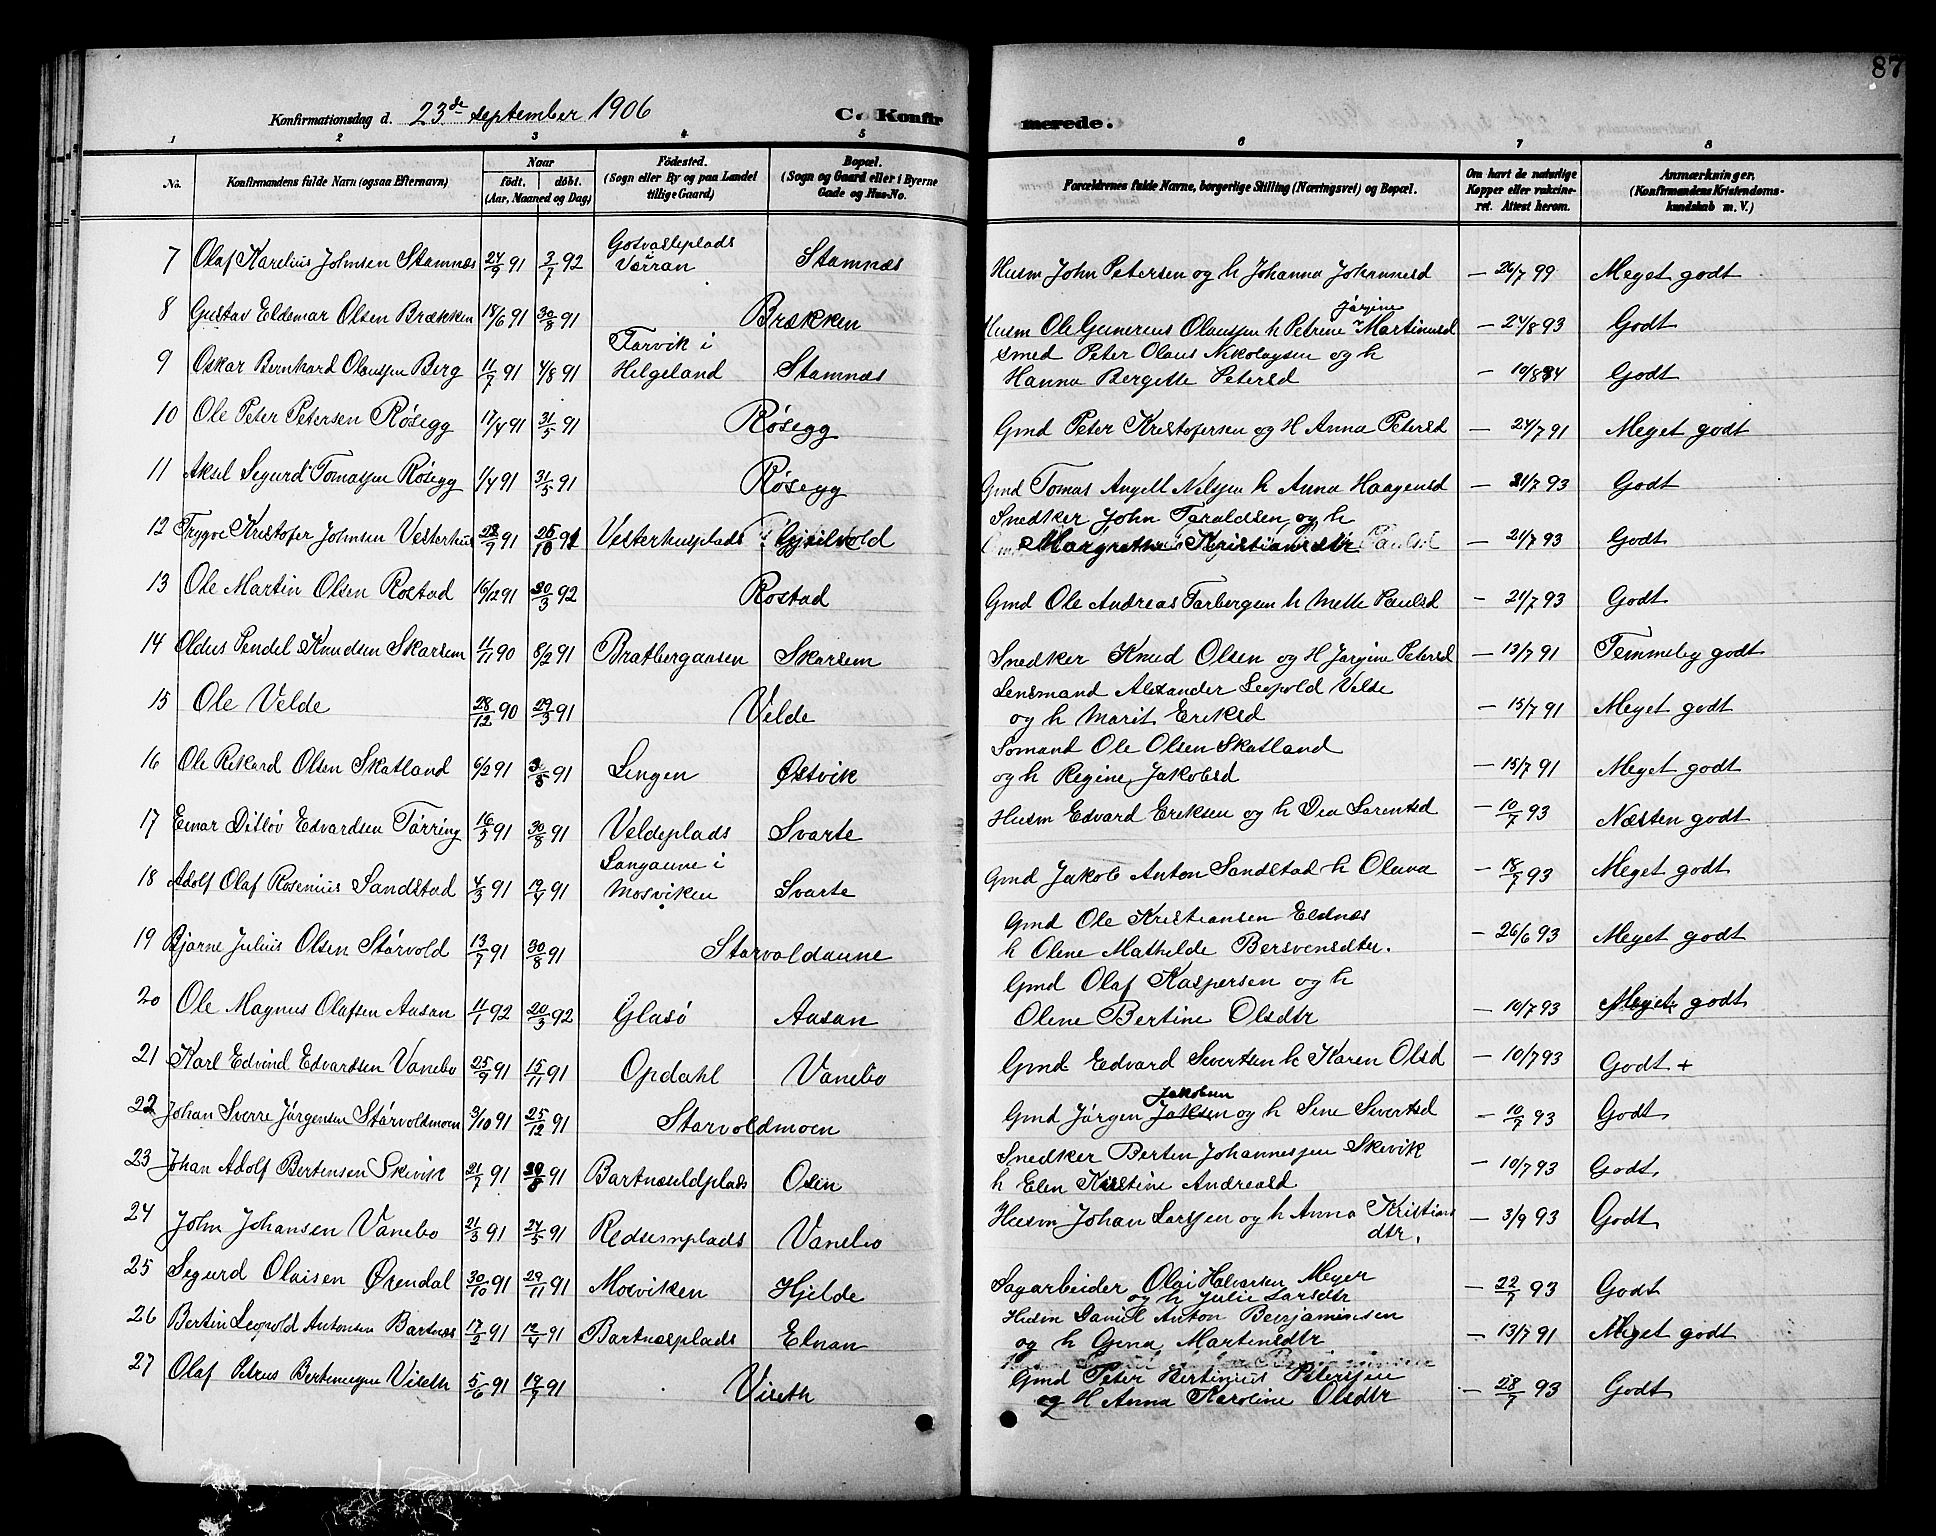 87
Konfirmationsdag d. 23de september 1906
C. Konfirmerede.
1 2 3 4 5 6 7 8
No.
Konfirmandens fulde Navn (ogsaa Efternavn)
Naar
födt. döbt.
(Aar, Maaned og Dag)
Födested.
(Sogn eller By og paa Landet
tillige Gaard)
Bopæl.
(Sogn og Gaard eller i Byerne
Gade og Hus-No.
Forældrenes fulde Navne, borgerlige Stilling (Næringsvei) og Bopæl.
Om havt de naturlige
Kopper eller vaccine-
ret. Attest herom.
Anmærkninger,
(Konfirmandens Kristendoms-
kundskab m. V.)
7 Olaf Karelius Johnsen Stamnæs 24/9 91 3/7 92 Verran Stamnæs Husm John Petersen og h Johanna Johannesd – 26/7 99 Meget godt
8 Gustav Eldemar Olsen Brækken 18/6 91 30/8 91 Brækken Husm Ole Gunerius Olaussen h Petrine Jørgine Martinusd – 24/8 93 Godt
9 Oskar Bernhard Olaussen Berg 11/7 91 4/8 91 Tarvik i Helgeland Stamnæs Smed Peter Olaus Nikolaysen og h
Hanna Bergette Petersd Godt
10 Ole Peter Petersen Røsegg 17/4 91 31/5 91 Røsegg Gmd Peter Kristofersen og H Anna Petersd – 24/7 91 Meget godt
11 Aksel Sigurd Tomassen Røsegg 1/4 91 31/5 91 Røsegg Gmd Tomas Angell Nelsen h Anna Haagensd – 21/7 93 Godt
12 Trygve Kristofer Johnsen Vesterhus 28/9 91 26/10 91 Vesterhusplads Snedker John Taraldsen og h
Margrethe Kristiansdtr – 21/7 93 Godt
13 Ole Martin Olsen Rostad 16/12 91 20/3 92 Rostad Gmd Ole Andreas Tarbergsen h Mette Paulsd – 21/7 93 Godt
14 Oldus Pendel Knudsen Skarsem 11/11 90 8/2 91 Bratbergaasen Skarsem Snedker Knud Olsen og H Jørgine Petersd – 13/7 91 Temmelig godt
15 Ole Velde 28/12 90 29/3 91 Velde Lensmand Alexander Leopold Velde
og h Marit Eriksd – 15/7 91 Meget godt
16 Ole Rikard Olsen Skatland 6/2 91 91 Lingen Østvik Sømand Ole Olsen Skatland
og h Regine Jakobsd – 15/7 91 Meget godt
17 Einar Ditløv Edvardsen Tørring 16/5 91 30/8 91 Veldeplads Svarte Husm Edvard Eriksen og h Dea Lorentsd – 10/7 93 Næsten godt
18 Adolf Olaf Rosenius Sandstad 4/3 91 19/4 91 Langaune i Mosviken Svarte Gmd Jakob Anton Sandstad h Olava – 18/7 93 Meget godt
19 Bjarne Julius Olsen Størvold 13/7 91 30/8 91 Størvoldaune Gmd Ole Kristiansen Eldnæs
h Olene Mathilde Bersvensdtr. – 26/6 93 Meget godt
20 Ole Magnus Olafsen Aasan 11/1 92 20/3 92 Glasø Aasan Gmd Olaf Kaspersen og h
Olene Bertine Olsdtr – 10/7 93 Meget godt
21 Karl Edvind Edvardsen Vanebo 25/9 91 15/11 91 Opdahl Vanebo Gmd Edvard Severtsen h Karen Olsd – 10/7 93 Godt +
22 Johan Sverre Jørgensen Størvoldmoen 3/10 91 25/12 91 Størvoldmoen Gmd Jørgen Jakobsen og h Sene Severtsd – 10/7 93 Godt
23 Johan Adolf Bertensen Skevik 21/7 91 30/8 91 Bartnæseldplads Osen Snedker Berten Johannesen Skevik
h Elen Kristine Andreasd – 10/7 93 Godt
24 John Johansen Vanebo 21/3 91 24/5 91 Redsemplads Vanebo Husm Johan Larssen og h Anna Kristians
dtr. – 3/9 93 Godt
25 Segurd Olaisen Ørendal 30/10 91 29/11 91 Mosviken Hjelde Sagarbeider Olai Halvarsen Meyer
og h Julie Larsdtr – 22/7 93 Godt
26 Bertin Leopold Antonsen Bartnæs 17/2 91 12/4 91 Bartnæsplads Elnan Husm Daniel Anton Benjaminsen
og h Gina Martensdtr – 13/7 91 Meget godt
27 Olaf Petrus Viseth 5/6 91 19/7 91 Viseth Gmd Peter Bertinius Peterssen
og H Anna Karoline Olsdtr – 28/7 93 Godt